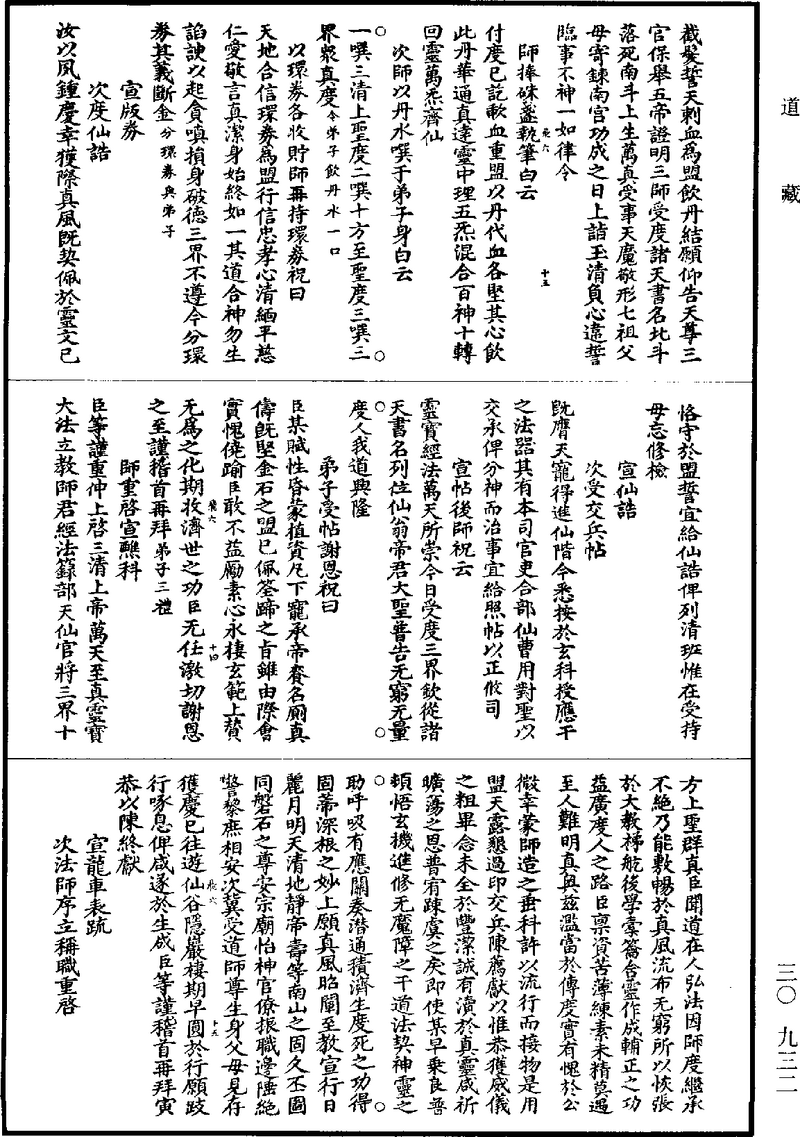 道藏
截髮誓天刺血為盟飲丹結願仰告天尊三
官保舉五帝證明三師受度諸天書名北斗
落死南斗上生萬真受事天魔敬形七祖父
母寄鍊南宮功成之日上詣玉清負心違誓
臨事不神一如律令
師捧硃盞執筆白云
付度已訖歃血重盟以丹代血各堅其心飲
此丹華通真達靈中理五炁混合百神十轉
回靈萬炁齊仙
次師以丹水噀于弟子身白云
一噀三清上聖度二噀十方至聖度三噀三
界衆真度令弟子飲丹水一口
以環券各收貯師再持環券祝曰
天地合信環券為盟行信忠孝心清緬平慈
仁愛敬言真潔身始終如一其道合神勿生
諂諛以起貪嗔損身破德三界不遵今分環
券其義斷金分環券與弟子
宣版券
次度仙誥
汝以夙鍾慶幸獲際真風既契佩於靈文已
恪守於盟誓宜給仙誥俾列清班惟在受持
毋忘修檢
宣仙誥
次受交兵帖
既膺天寵得進仙階今悉按於玄科授應干
之法器其有本司官吏合部仙曹用對聖以
交承俾分神而治事宜給照帖以正攸司
宣帖後師祝云
靈寶經法萬天所崇今日受度三界欽從諸
天書名列位仙翁帝君大聖普告无窮无量
度人我道興隆
弟子受帖謝恩祝曰
臣某賦性昏蒙植資凡下寵承帝賚名廁真
儔既堅金石之盟已佩筌蹄之旨雖由際會
實愧僥踰臣敢不益勵素心永棲玄範上贊
无為之化期收濟世之功臣无任激切謝恩
之至謹稽首再拜弟子三禮
師重啓宣醮科
臣等謹重仲上啓三清上帝萬天至真靈寶
大法立教師君經法籙部天仙官將三界十
方上聖群真臣聞道在人弘法因師度繼承
不絶乃能敷暢於真風流布无窮所以恢張
於大教梯航後學橐籥含靈作成輔正之功
益廣度人之路臣禀資苦薄練素未精莫遇
至人難明真奥兹濫當於傳度實有愧於公
微幸蒙師造之垂科許以流行而接物是用
盟天露懇過印交兵陳薦獻以惟恭獲感儀
之粗畢念未全於豐潔誠有瀆於真靈感祈
曠蕩之恩普宥踈虞之矣即使某早乘良善
頓悟玄機進修无魔障之干道法契神靈之
助呼吸有應關奏潛通積濟生度死之功得
固蒂深根之妙上願真風昭闡至教宣行日
麗月明天清地靜帝壽等南山之固久丕圖
同磐石之尊安宗廟怡神官僚振職邊陲絶
警黎庶相安次冀受道師尊生身父母見存
獲慶已往遊仙谷隱巖棲期早圓於行願跂
行喙息俾咸遂於生成臣等謹稽首再拜寅
恭以陳終獻
宣龍車表疏
次法師序立稱職重啓
三〇
九三二